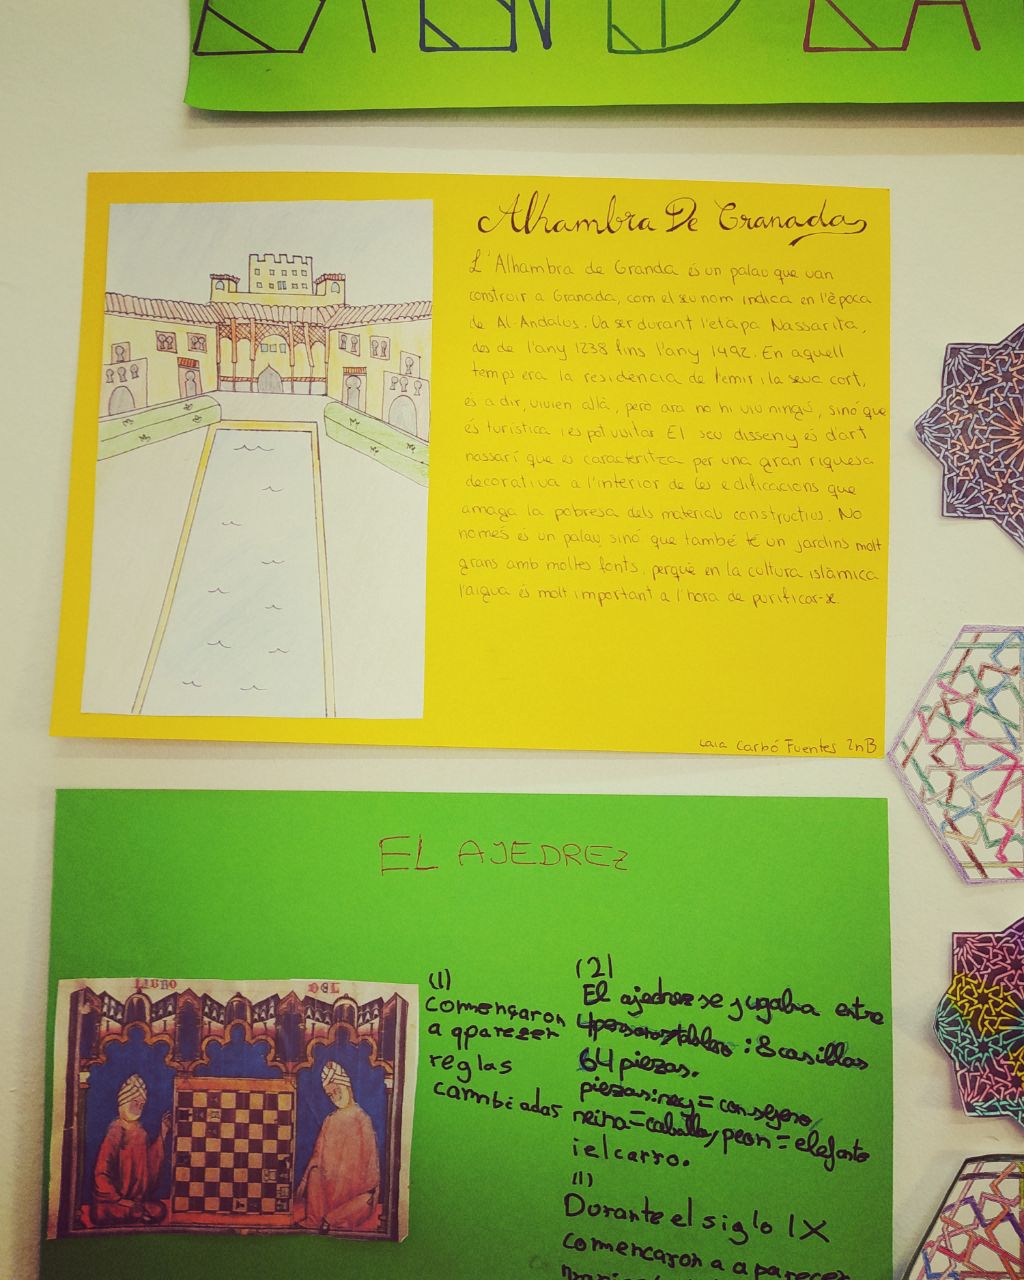 Alhambra De Granada
L'Alhambra de Granda és un palau que van
construir a Granada, com el seu nom indica en l'època
de Al-Andalus. Va ser durant l'etapa Nassarita,
des de l'any 1238 fins l'any 1492. En aquell
temps era la residència de l'emir i la seva cort,
és a dir, vivien allà, però ara no hi viu ningú, sinó que
és turística i es pot visitar. El seu disseny és d'art
nassarí que es caracteritza per una gran riquesa
decorativa a l'interior de les edificacions que
amaga la pobresa dels materials constructius. No
només és un palau, sinó que també té un jardins molt
grans amb moltes fonts, perquè en la cultura islàmica
l'aigua és molt important a l'hora de purificar-se.
Laia Carbó Fuentes 2nB
EL AJEDREZ
LIBRO DEL
(1)
començaron
a aparezer
reglas
cambiadas
(2)
El ajedrez se jugaba entre
: 8 casillas
64 piezas.
piezas: rey = consejero,
reina = caballo, peon = elefante
i el carro.
(1)
Durante el siglo IX
comencaron a aparecer